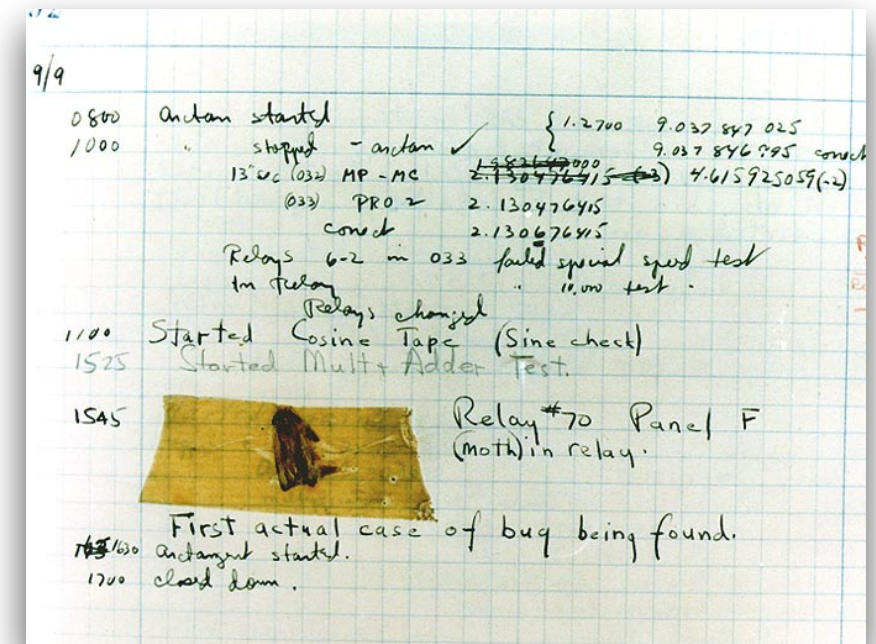 9/9
0800 arctan started { 1.2700 9.037 847 025
1000 " stopped - arctan ✓ 9.037 846 795 correct
13"sec (032) MP - MC 2.130476415 4.615925059(-2)
(033) PRO 2 2.130476415
correct 2.130676415
Relays 6-2 in 033 failed special speed test
In Relay " 10,000 test.
Relays changed
1100 Started Cosine Tape (Sine check)
1525 Started Mult+ Adder Test.
1545 Relay #70 Panel F
(moth) in relay.
First actual case of bug being found.
1630 arctangent started.
1700 closed down.